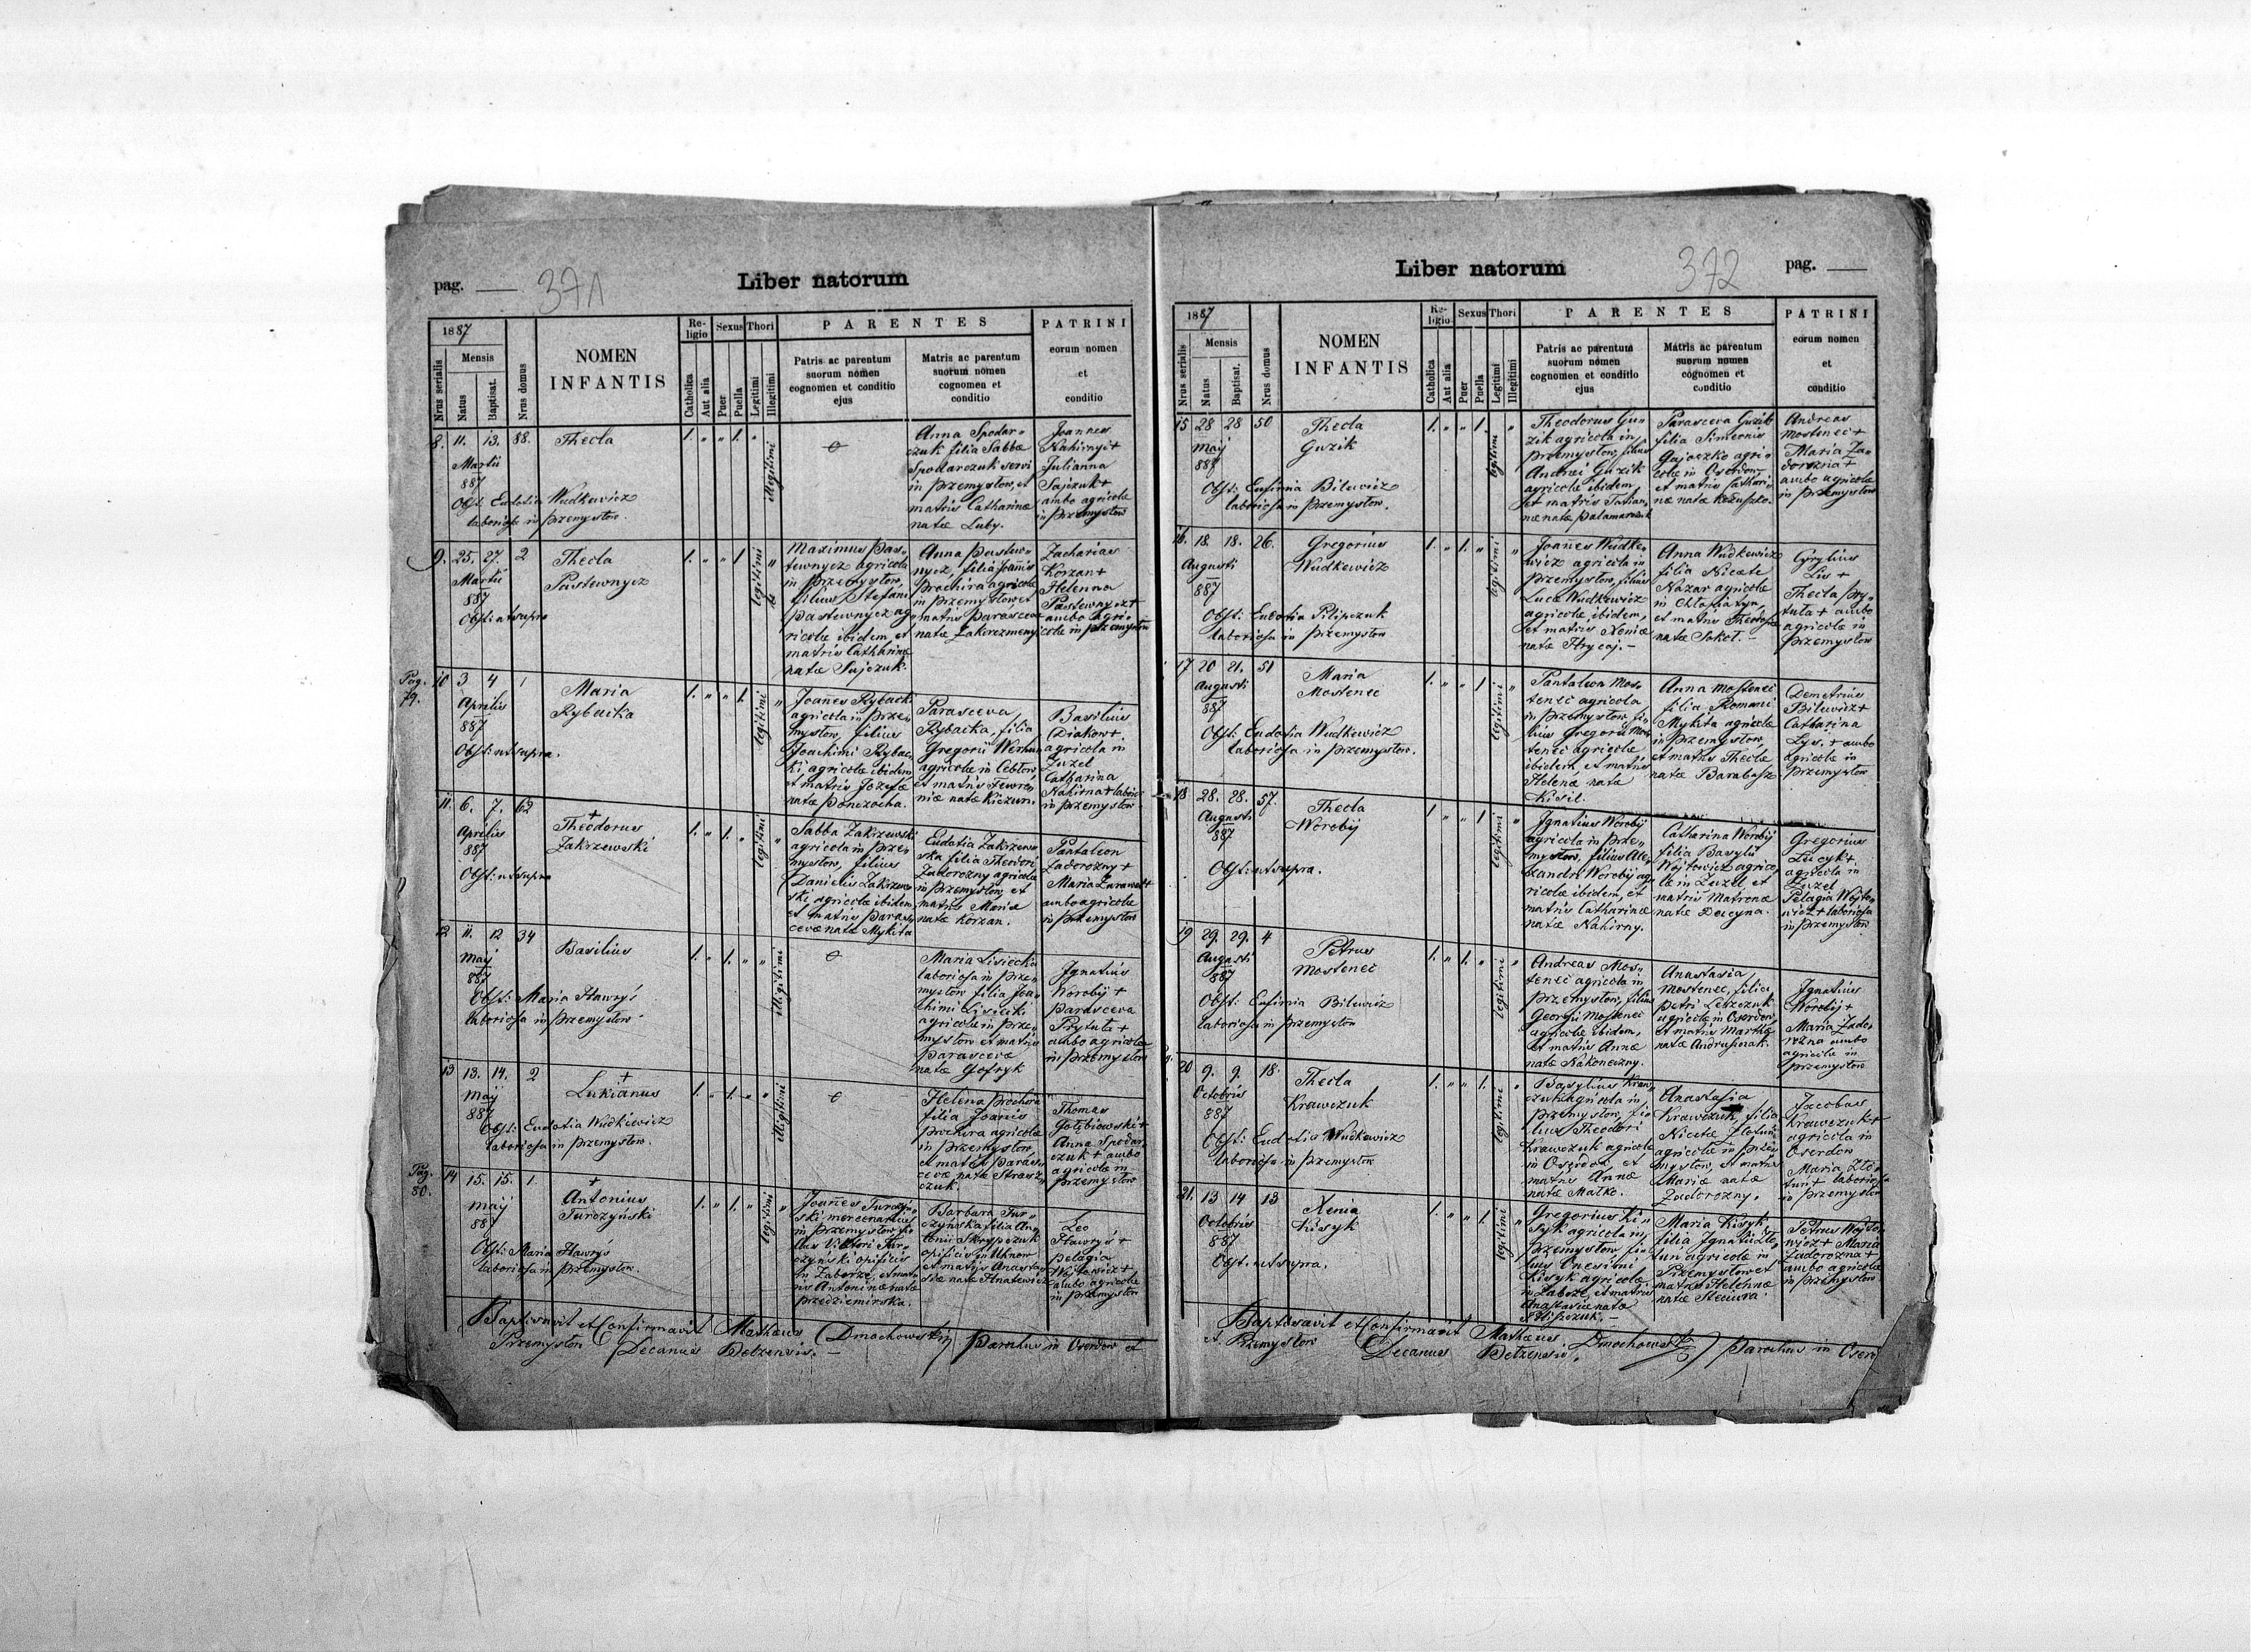 pag. 371
Liber natorum
1887
Mensis
Nrus serialis
Natus
Baptisat.
Nrus domus
NOMEN
INFANTIS
Re-
ligio
Sexus
Thori
Catholica
Aut alia
Puer
Puella
Legitimi
Illegitimi
PARENTES
Patris ac parentum
suorum nomen
cognomen et conditio
ejus
Matris ac parentum
suorum nomen
cognomen et
conditio
PATRINI
eorum nomen
et
conditio
8. 11. 13. 88. Thecla 1. " " 1. " illegitimi
Martii
887
Obst: Eudotia Wudkewicz
laboriosa in Przemysłow.
Anna Spodar=
czuk filia Sabbae
Spodarczuk servi
in Przemysłow, et
matris Catharinae
natae Luby.
Joannes
Nahirnyi +
Julianna
Sajczuk +
ambo agricolae
in Przemysłow
9. 25. 27. 2 Thecla 1. " " 1 legitimi "
Pastewnycz
Martii
887
Obst: ut supra
Maximus Pas=
tewnycz agricola
in Przemysłow,
filius Stefani
Pastewnycz ag=
ricolae ibidem, et
matris Catharinae
natae Sajczuk.
Anna Pastew=
nycz, filia Joannis
Prachira agricolae
in Przemysłow et
matris Parascevae
natae
Zacharias
Korzan +
Helenna
Pastewnycz +
ambo agri=
colae in Przemysłow
Pag.
79.
10 3 4 1 Maria 1. " " 1. legitimi "
Rybacka
Aprilis
887
Obst: ut supra.
Joannes Rybacki
agricola in Prze=
mysłow, filius
Joachimi Rybac
ki agricolae ibidem
et matris Jozefae
natae Ponczocha.
Parasceva
Rybacka, filia
Gregorii Werhun
agricolae in Cebłow,
et matris Fewro=
niae natae Kiczun.
Basilius
Diakow +
agricola in
Zuzel
Catharina
Nahirna + laborio
in Przemysłow
11. 6. 7. 62 + Theodorus 1. " 1. " legitimi "
Zakrzewski
Aprilis
887
Obst: ut supra
Sabba Zakrzewski
agricola in Prze=
mysłow, filius
Danielis Zakrzew
ski agricolae ibidem,
et matris Paras=
cevae natae Mykita
Eudotia Zakrzews
ka filia Theodori
Zadorozny agricolae
in Przemysłow, et
matris Mariae
natae Korzan.
Pantaleon
Zadorozny +
Maria
ambo agricolae
in Przemysłow
12 11. 12 34 Basilius 1. " 1. " " illegitimi
Maij
887
Obst: Maria Hawryś
laboriosa in Przemysłow
Maria Lisiecka
laboriosa in Prze=
mysłow filia Joa=
chimi Lisiecki
agricolae in Prze=
mysłow et matris
Parascevae
natae Gofryk
Ignatius
Worobij +
Parasceva
Prytuła +
ambo agricolae
in Przemysłow
13 13. 14. 2 + Lukianus 1. " 1. " " illegitimi
Maij
887
Obst: Eudotia Wudkiewicz
laboriosa in Przemysłow.
Helena Prochira
filia Joannis
Prochira agricolae
in Przemysłow,
et matris Paras=
cevae natae Strasz=
czuk.
Thomas
Gołębiowski +
Anna Spodar
czuk + ambo
agricolae in
Przemysłow
Pag.
80.
14 15. 15. 1. + Antonius 1. " 1. " legitimi "
Turczyński
Maij
887
Obst: Maria Hawryś
laboriosa in Przemysłow.
Joannes Turczyń=
ski mercenarius
in Przemysłow, fi=
lius Viktori Tur=
czyński opificis
in Zaborze, et mat=
ris Antoninae natae
Przedziemirska.
Barbara Tur=
czyńska filia An=
tonii Skrypczuk
opificis in Uhnow
et matris Anasta=
siae natae Hnatewicz
Leo
Hawryś +
Pelagia
Wojtowicz +
ambo agricolae
in Przemysłow
Baptisavit et Confirmavit Mathaeus Dmochowski Parochus in Oserdow et
Przemysłow Decanus Belzensis.
Liber natorum
372 pag.
1887
Mensis
Nrus serialis
Natus
Baptisat.
Nrus domus
NOMEN
INFANTIS
Re-
ligio
Sexus
Thori
Catholica
Aut alia
Puer
Puella
Legitimi
Illegitimi
PARENTES
Patris ac parentum
suorum nomen
cognomen et conditio
ejus
Matris ac parentum
suorum nomen
cognomen et
conditio
PATRINI
eorum nomen
et
conditio
15 28 28 50 Thecla 1. " " 1. legitimi "
Guzik
Maij
887
Obst: Eufimia Bilewicz
laboriosa in Przemysłow.
Theodorus Gu=
zik agricola in
Przemysłow, filius
Andrei Guzik
agricolae ibidem,
et matris Tatian=
nae natae Palamarczuk
Parasceva Guzik
filia Simeonis
Gajoczko agri=
colae in Oserdow,
et matris Cathari=
nae natae
Andreas
Mostenec +
Maria Za=
dorozna +
ambo agricolae
in Przemysłow
16. 18. 18. 26. Gregorius 1. " 1. " legitimi "
Wudkewicz
Augusti
887
Obst: Eudotia Pilipczuk
laboriosa in Przemysłow
Joannes Wudke=
wicz agricola in
Przemysłow, filius
Lucae Wudkewicz
agricolae ibidem,
et matris Xeniae
natae Hrycaj.
Anna Wudkewicz
filia Nicetae
Nazar agricolae
in Chłopiatyn,
et matris Theodosiae
natae Sokoł.
Cyrylius
Lis +
Thecla Pry=
tuła + ambo
agricolae in
Przemysłow
17 20 21. 51 Maria 1. " " 1 legitimi "
Mostenec
Augusti
887
Obst: Eudotia Wudkewicz
laboriosa in Przemysłow.
Pantaleon Mos=
tenec agricola
in Przemysłow, fi=
lius Gregorii Mos=
tenec agricolae
ibidem, et matris
Helenae natae
Kisil.
Anna Mostenec
filia Romani
Mykita agricolae
in Przemysłow,
et matris Theclae
natae Barabasz
Demetrius
Bilewicz +
Catharina
Lys. + ambo
agricolae in
Przemysłow
18 28. 28. 57. Thecla 1 " " 1 legitimi "
Worobij
Augusti
887
Obst: ut supra.
Ignatius Worobij
agricola in Prze=
mysłow, filius Ale=
xandri Worobij ag=
ricolae ibidem, et
matris Catharinae
natae Nahirny.
Catharina Worobij
filia Basylii
Wojtowicz agrico
lae in Zuzel et
matris Matronae
natae Deecyna.
Gregorius
Lucyk +
agricola in
Zuzel
Pelagia Wojto=
wicz + laboriosa
in Przemysłow
19 29. 29. 4 Petrus 1. " 1. " legitimi "
Mostenec
Augusti
887
Obst: Eufimia Bilewicz
laboriosa in Przemysłow
Andreas Mos=
tenec agricola in
Przemysłow, filius
Georgii Mostenec
agricolae ibidem,
et matris Annae
natae Nakoneczny.
Anastasia
Mostenec, filia
Petri Leszczuk
agricolae in Oserdow,
et matris Marthae
natae
Ignatius
Worobij +
Maria Zado=
rozna ambo
agricolae in
Przemysłow
20 9. 9. 18. Thecla 1. " " 1. legitimi "
Krawczuk
Octobris
887
Obst: Eudotia Wudkewicz
laboriosa in Przemysłow
Basylius Kraw=
czuk agricola in
Przemysłow, fi=
lius Theodori
Krawczuk agricolae
in Oserdow, et
matris Annae
natae Malko.
Anastasia
Krawczuk, filia
Nicetae
agricolae in Prze=
mysłow, et matris
Mariae natae
Zadorozny.
Jacobus
Krawczuk +
agricola in
Oserdow
Maria Zło=
tun + laboriosa
in Przemysłow
21. 13 14 13 Xenia 1. " " 1. legitimi "
Kisyk
Octobris
887
Obst: ut supra.
Gregorius Ki=
syk agricola in
Przemysłow fi=
lius Onesimi
Kisyk agricolae
in Zaborze, et matris
Anastasiae natae
Maria Kisyk
filia Ignatii Zło=
tun agricolae in
Przemysłow et
matris Helennae
natae Steciura.
Petrus Wojto=
wicz + Maria
Zadorozna +
ambo agricolae
in Przemysłow
Baptisavit et Confirmavit Mathaeus Dmochowski Parochus in Oserd
et Przemysłow Decanus Belzensis.